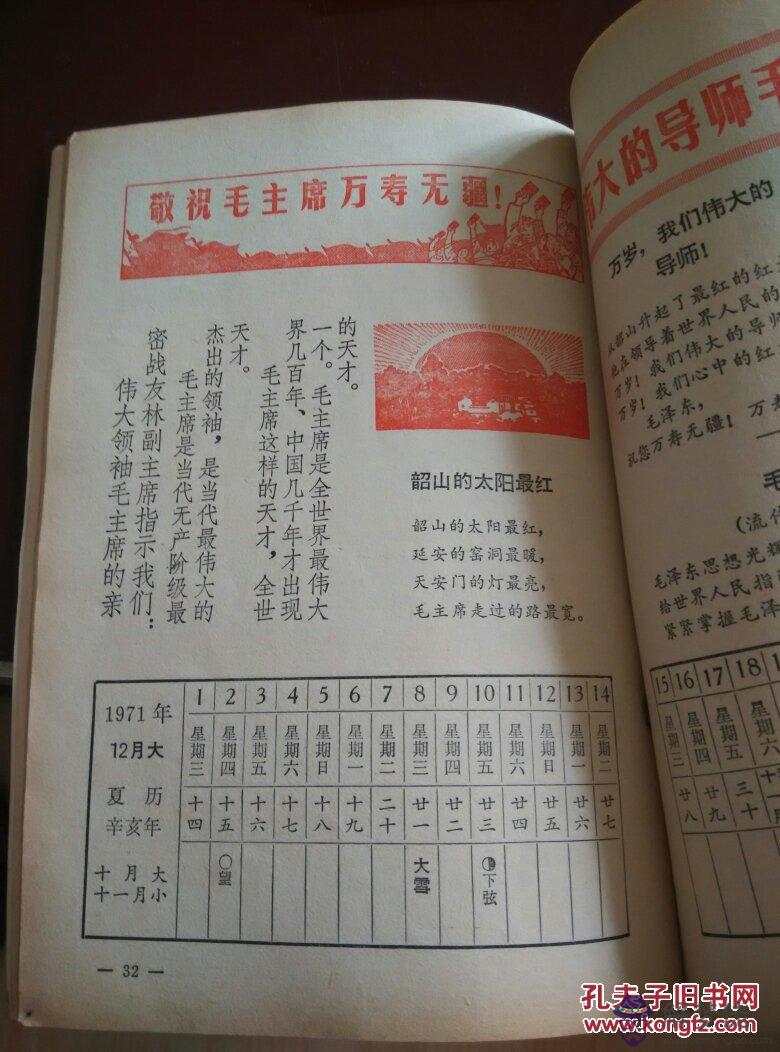 敬祝毛主席万寿无疆！
伟大领袖毛主席的亲
密战友林副主席指示我们：
毛主席是当代无产阶级最
杰出的领袖，是当代最伟大的
天才。
毛主席这样的天才，全世
界几百年、中国几千年才出现
一个。毛主席是全世界最伟大
的天才。
韶山的太阳最红
韶山的太阳最红，
延安的窑洞最暖，
天安门的灯最亮，
毛主席走过的路最宽。
1971年 1 2 3 4 5 6 7 8 9 10 11 12 13 14
12月大 星期三 星期四 星期五 星期六 星期日 星期一 星期二 星期三 星期四 星期五 星期六 星期日 星期一 星期二
夏历
辛亥年 十四 十五 十六 十七 十八 十九 二十 廿一 廿二 廿三 廿四 廿五 廿六 廿七
十月大
十一月小 望 大雪 下弦
— 32 —
大的导师毛
万岁，我们伟大的
导师！
从韶山升起了最红的红
他在领导着世界人民的
万岁！我们伟大的导师
万岁！我们心中的红
毛泽东，
祝您万寿无疆！万
毛
（流
毛泽东思想光辉
给世界人民指
紧紧掌握毛泽
15 16 17 18
星期三 星期四 星期五 星期六
廿八 廿九 三十
孔夫子旧书网
www.kongfz.com